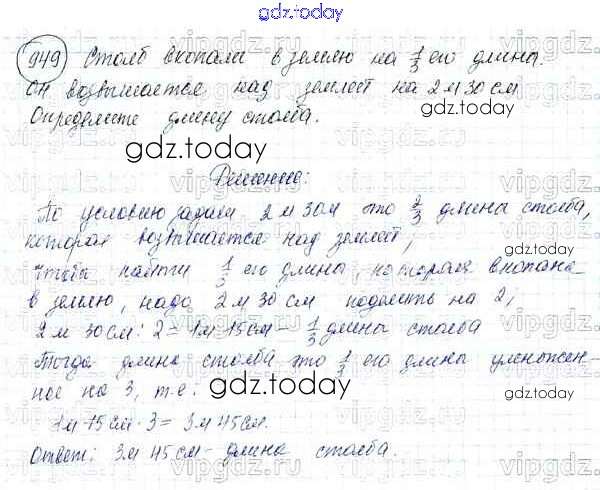 gdz.today
949 Столб вкопали в землю на 1/3 его длины.
Он возвышается над землей на 2 м 30 см
Определите длину столба.
gdz.today
Решение:
По условию задачи 2 м 30 м это 2/3 длины столба,
которая возвышается над землей,
gdz.today
Чтобы найти 1/3 его длины, которая вкопана
в землю, надо 2 м 30 см поделить на 2;
2 м 30 см : 2 = 1 м 15 см - 1/3 длины столба
Тогда длина столба это 1/3 его длины умножен-
ное на 3, т.е.
gdz.today
1 м 15 см · 3 = 3 м 45 см.
Ответ: 3 м 45 см - длина столба.
gdz.today